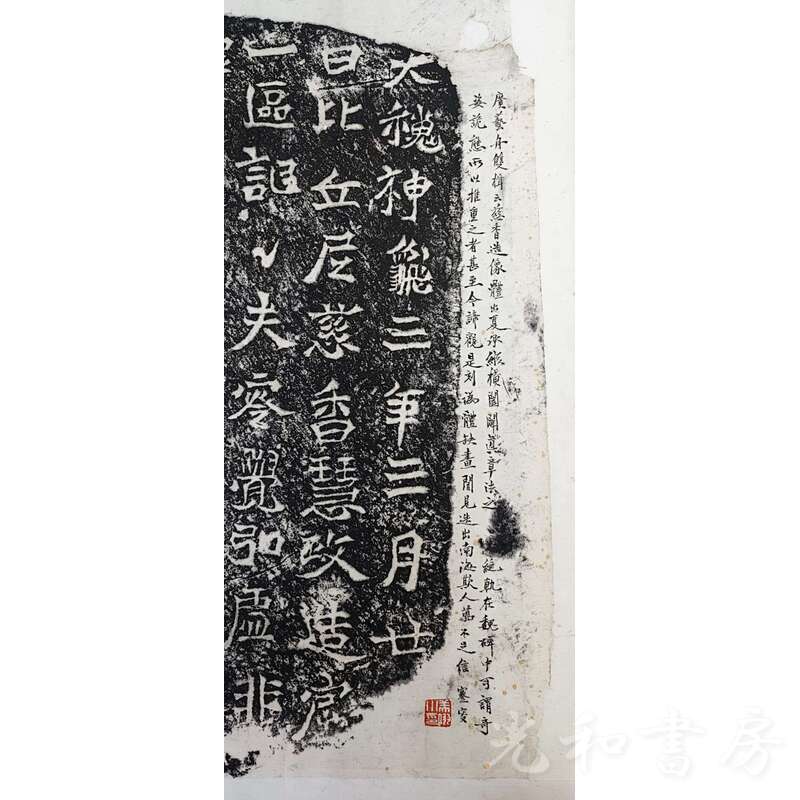 廣藝舟雙楫云慈香造像體出夏承縱橫闔闢真章法之絕軌在魏碑中可謂奇
姿詭態所以推重之者甚至今諦觀是刻訛體缺畫間見迭出南海欺人萬不足信
大魏神龜三年三月廿
日比丘尼慈香慧政造窟
一區記〻夫零覺弘虛非
光和書房